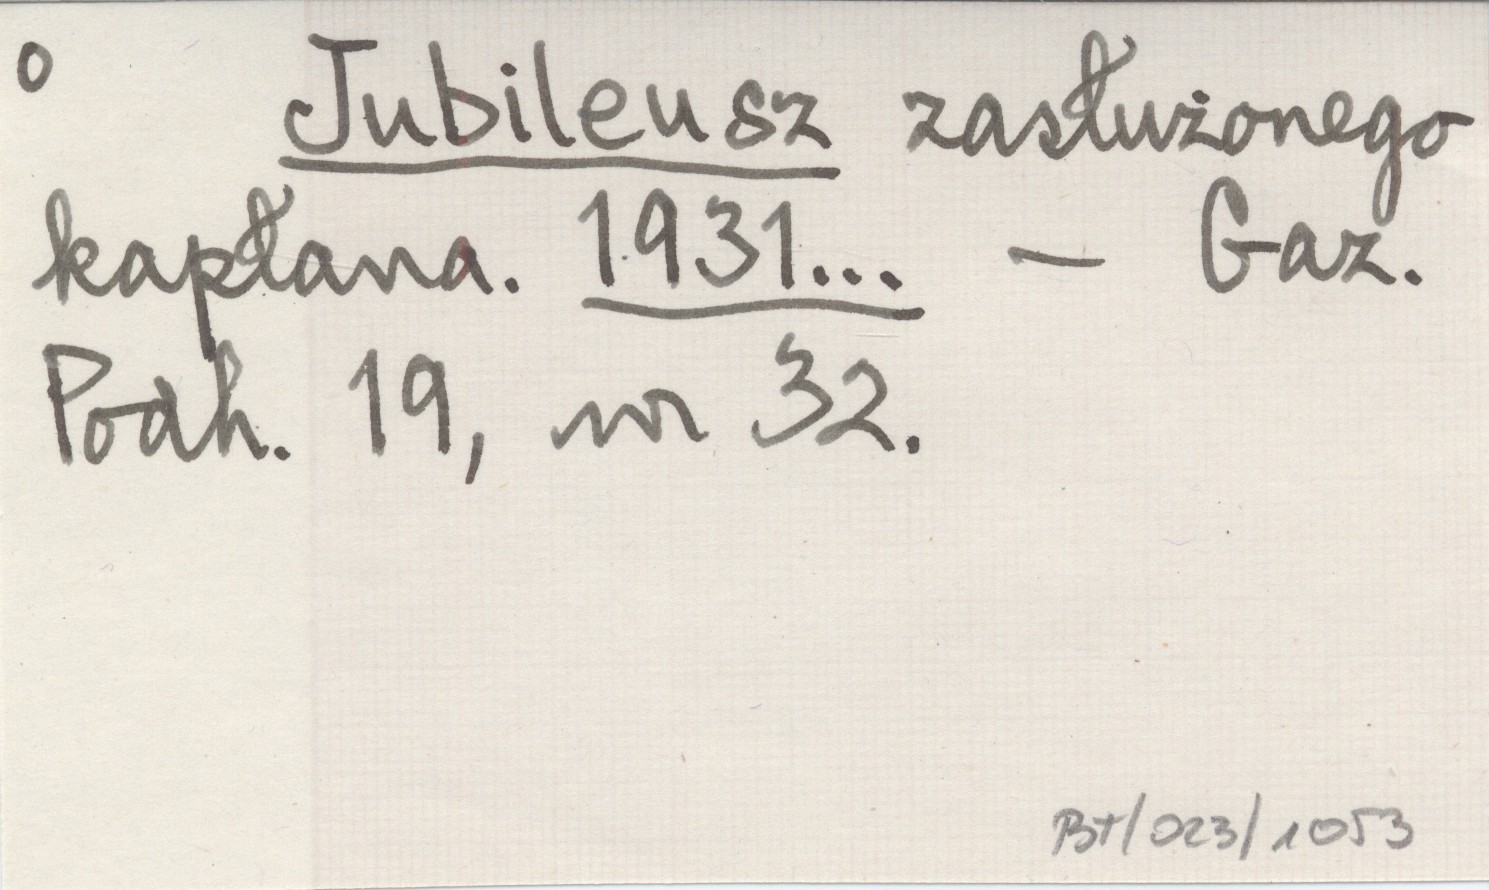 o Jubileusz zasłużonego
kapłana. 1931... - Gaz.
Podh. 19, nr 32.
BT/023/1053